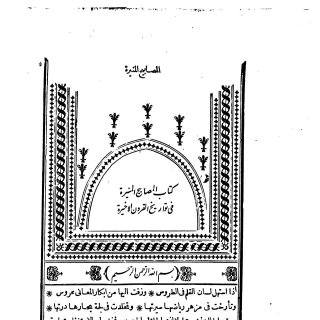 المصابيح المنيرة
كتاب المصابيح المنيرة
في تواريخ القرون الاخيرة
بسم الله الرحمن الرحيم
اذا استهل لسان القلم في الطروس * وزفت اليها من ابكار المعاني عروس *
وتأرخت في مزهر رياضها سيرتها * وتقلدت في لجة بحارها درتها *